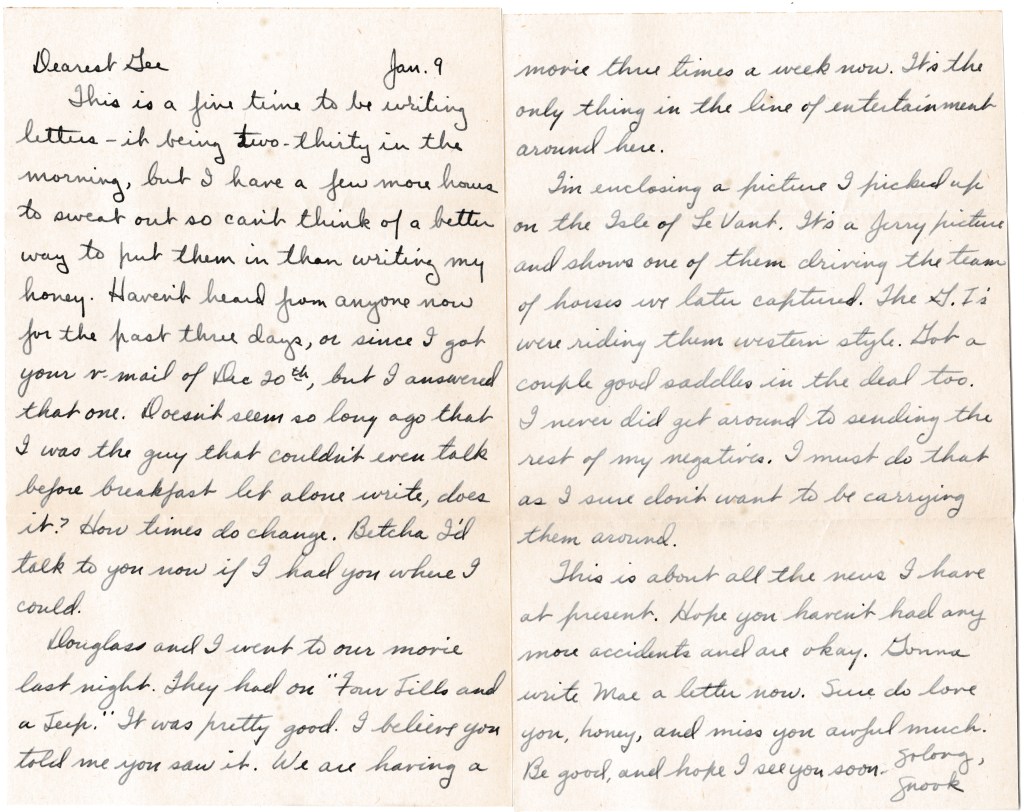 Dearest Gee Jan. 9
This is a fine time to be writing
letters - it being two-thirty in the
morning, but I have a few more hours
to sweat out so can't think of a better
way to put them in than writing my
honey. Haven't heard from anyone now
for the past three days, or since I got
your v-mail of Dec 20th, but I answered
that one. Doesn't seem so long ago that
I was the guy that couldn't even talk
before breakfast let alone write, does
it? How times do change. Betcha I'd
talk to you now if I had you where I
could.
Douglass and I went to our movie
last night. They had on "Four Jills and
a Jeep." It was pretty good. I believe you
told me you saw it. We are having a
movie three times a week now. It's the
only thing in the line of entertainment
around here.
I'm enclosing a picture I picked up
on the Isle of Le Vant. It's a Jerry picture
and shows one of them driving the team
of horses we later captured. The G.I's
were riding them western style. Got a
couple good saddles in the deal too.
I never did get around to sending the
rest of my negatives. I must do that
as I sure don't want to be carrying
them around.
This is about all the news I have
at present. Hope you haven't had any
more accidents and are okay. Gonna
write Mae a letter now. Sure do love
you, honey, and miss you awful much.
Be good, and hope I see you soon. Solong,
Snook